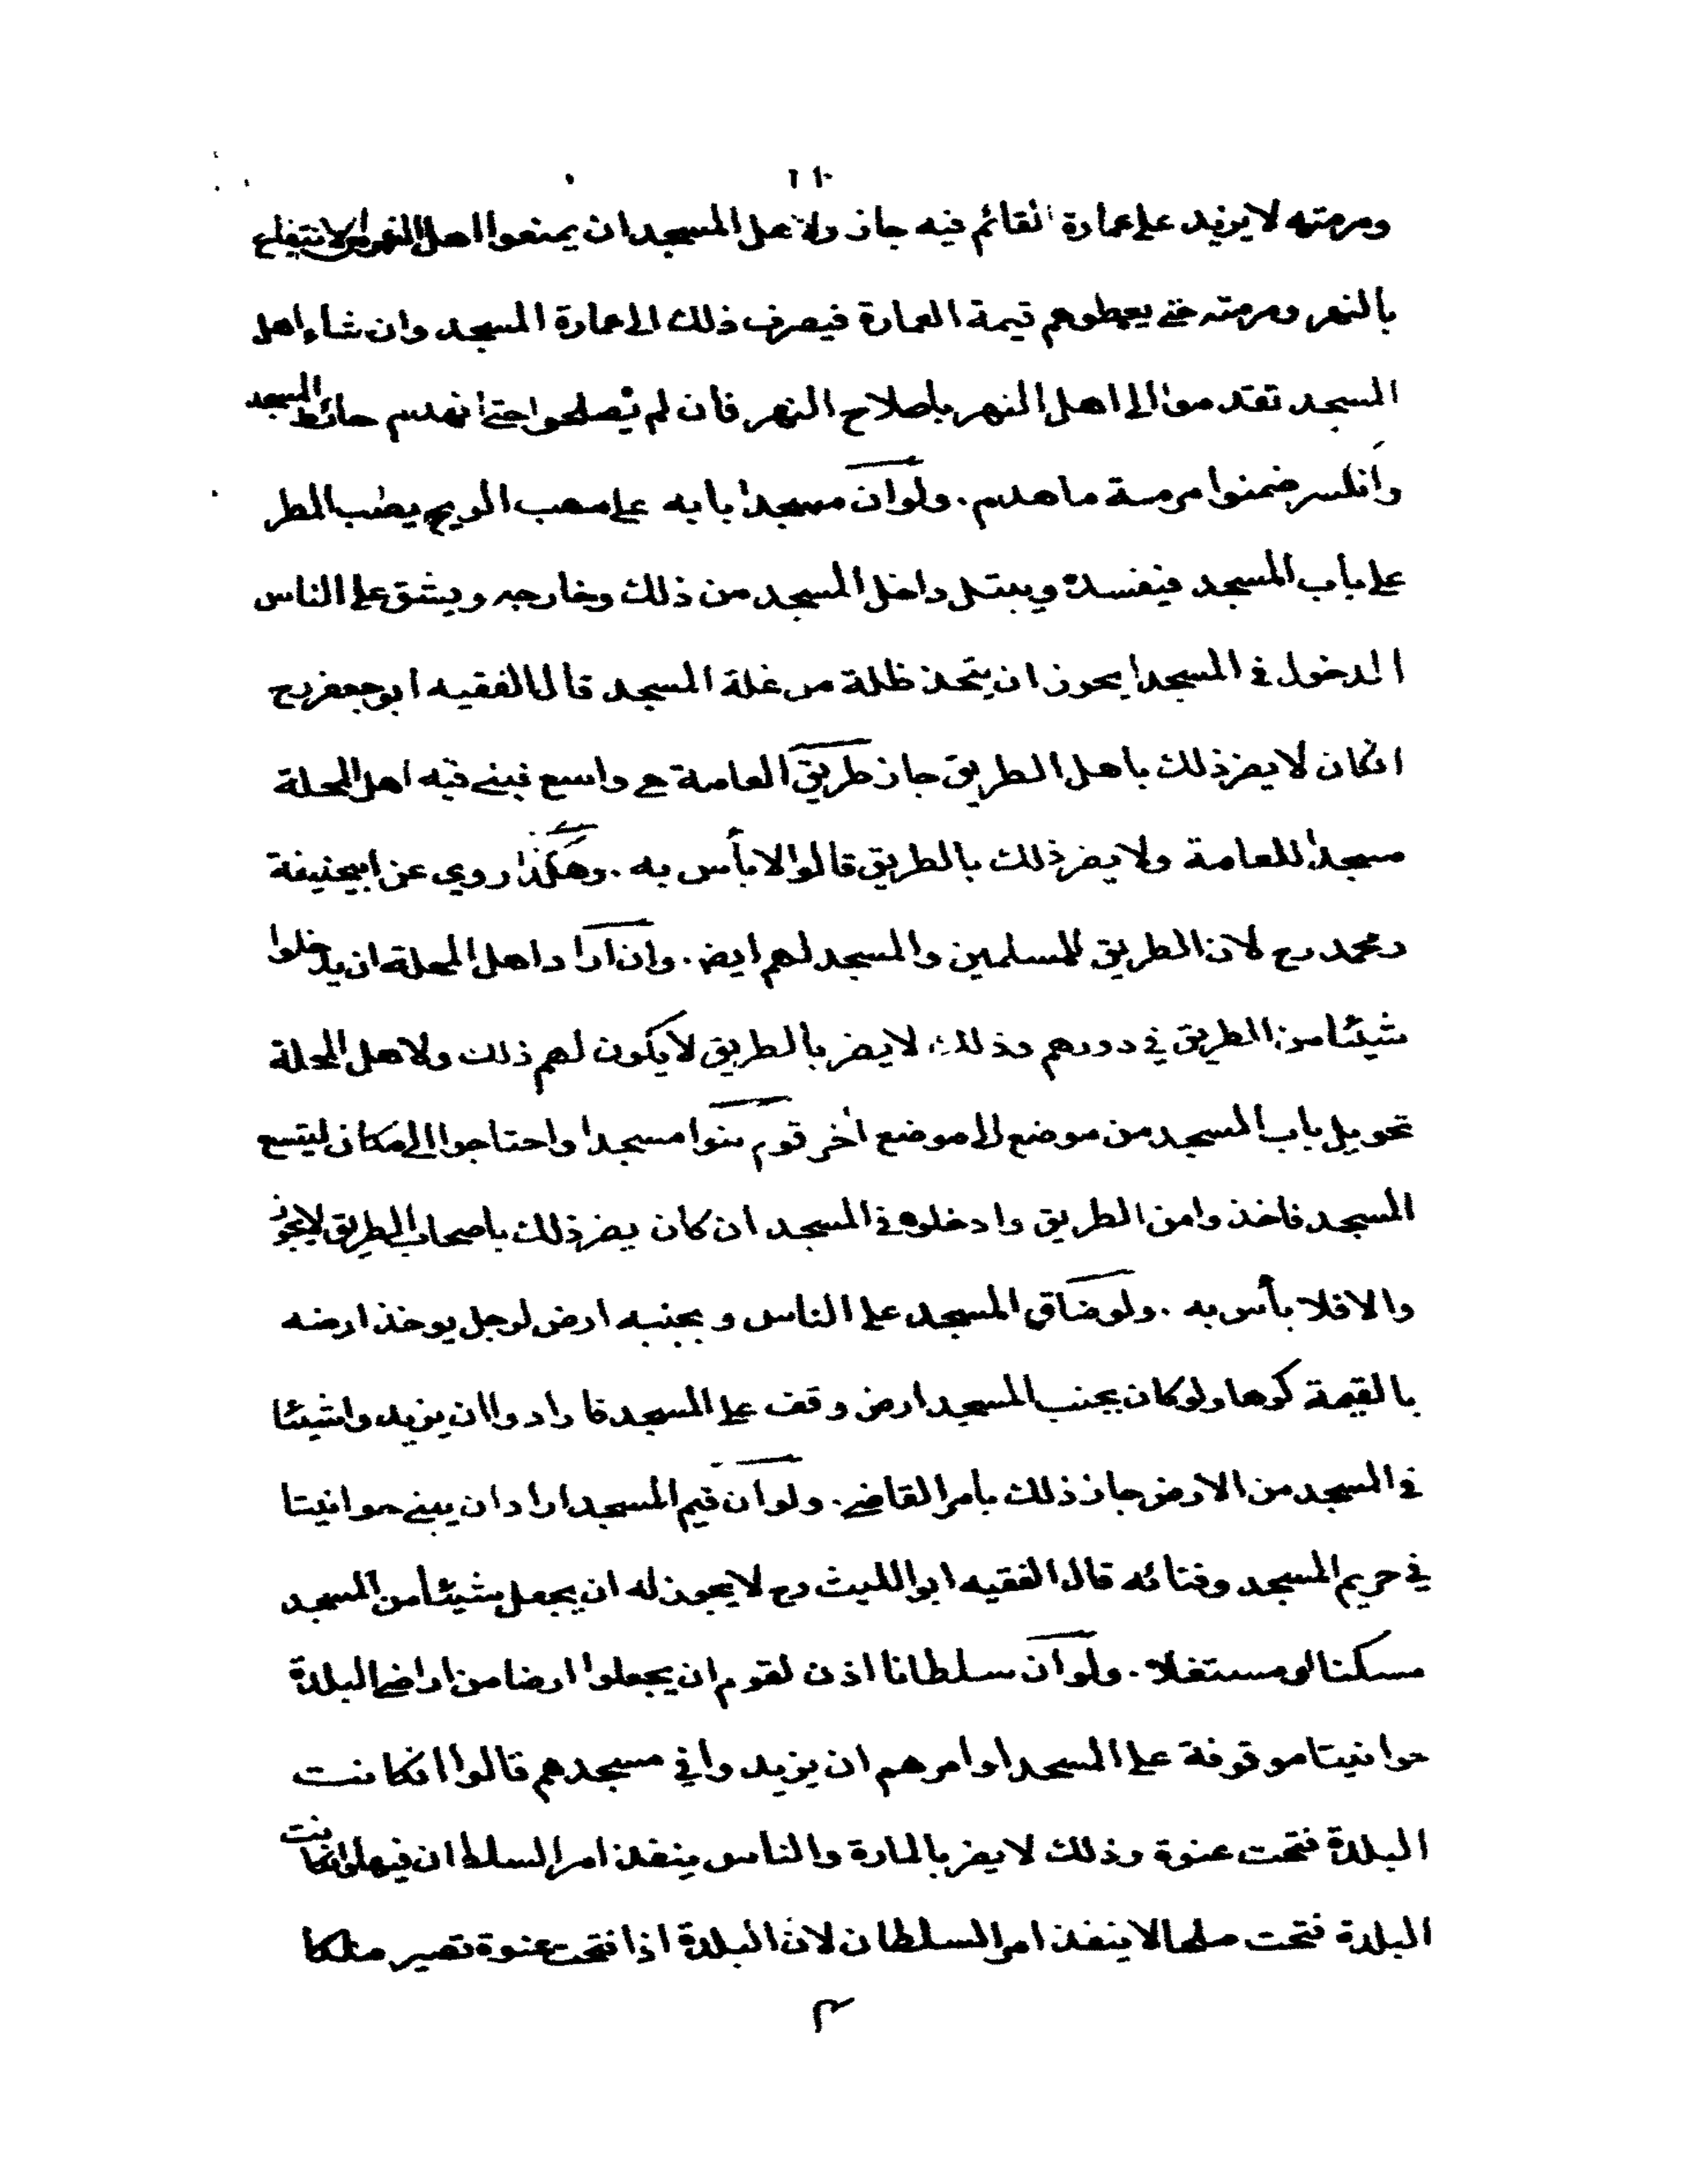 ومرمته لا يزيد على عمارة القائم فيه جاز ولاهل المسجد ان يمنعوا اهل النهر من الانتفاع
بالنهر ومرمته حتى يعطوهم قيمة العمارة فيصرف ذلك الى عمارة المسجد وان شاء اهل
المسجد تقدموا الى اهل النهر باصلاح النهر فان لم يصلحوا حتى انهدم حائط المسجد
وانكسر ضمنوا مرمة ما هدم. ولو ان مسجدا بابه على مهب الريح يصب المطر
على باب المسجد فيفسده ويبتل داخل المسجد من ذلك وخارجه ويشق على الناس
الدخول في المسجد ايجوز ان يتخذ ظلة من غلة المسجد قال الفقيه ابو جعفر رح
انكان لا يضر ذلك باهل الطريق جاز طريق العامة هي واسع فبنى فيه اهل المحلة
مسجدا للعامة ولا يضر ذلك بالطريق قالوا لا بأس به. وهكذا روي عن ابيحنيفة
ومحمد رح لان الطريق للمسلمين والمسجد لهم ايض. وان اراد اهل المحلة ان يدخلوا
شيئا من الطريق في دورهم وذلك لا يضر بالطريق لا يكون لهم ذلك ولاهل المحلة
تحويل باب المسجد من موضع الى موضع اخر قوم بنوا مسجدا واحتاجوا الى مكان ليتسع
المسجد فاخذوا من الطريق وادخلوه في المسجد ان كان يضر ذلك باصحاب الطريق لا يجوز
والا فلا بأس به. ولو ضاق المسجد على الناس وبجنبه ارض لرجل يوخذ ارضه
بالقيمة كرها ولو كان بجنب المسجد ارض وقف على المسجد فارادوا ان يزيدوا شيئا
في المسجد من الارض جاز ذلك بأمر القاضي. ولو ان قيم المسجد اراد ان يبني حوانيتا
في حريم المسجد وفنائه قال الفقيه ابو الليث رح لا يجوز له ان يجعل شيئا من المسجد
مسكنا او مستغلا. ولو ان سلطانا اذن لقوم ان يجعلوا ارضا من اراضي البلدة
حوانيتا موقوفة على المسجد او امرهم ان يزيدوا في مسجدهم قالوا انكانت
البلدة فتحت عنوة وذلك لا يضر بالمارة والناس ينفذ امر السلطان فيها وانكانت
البلدة فتحت صلحا لا ينفذ امر السلطان لان البلدة اذا فتحت عنوة تصير ملكا